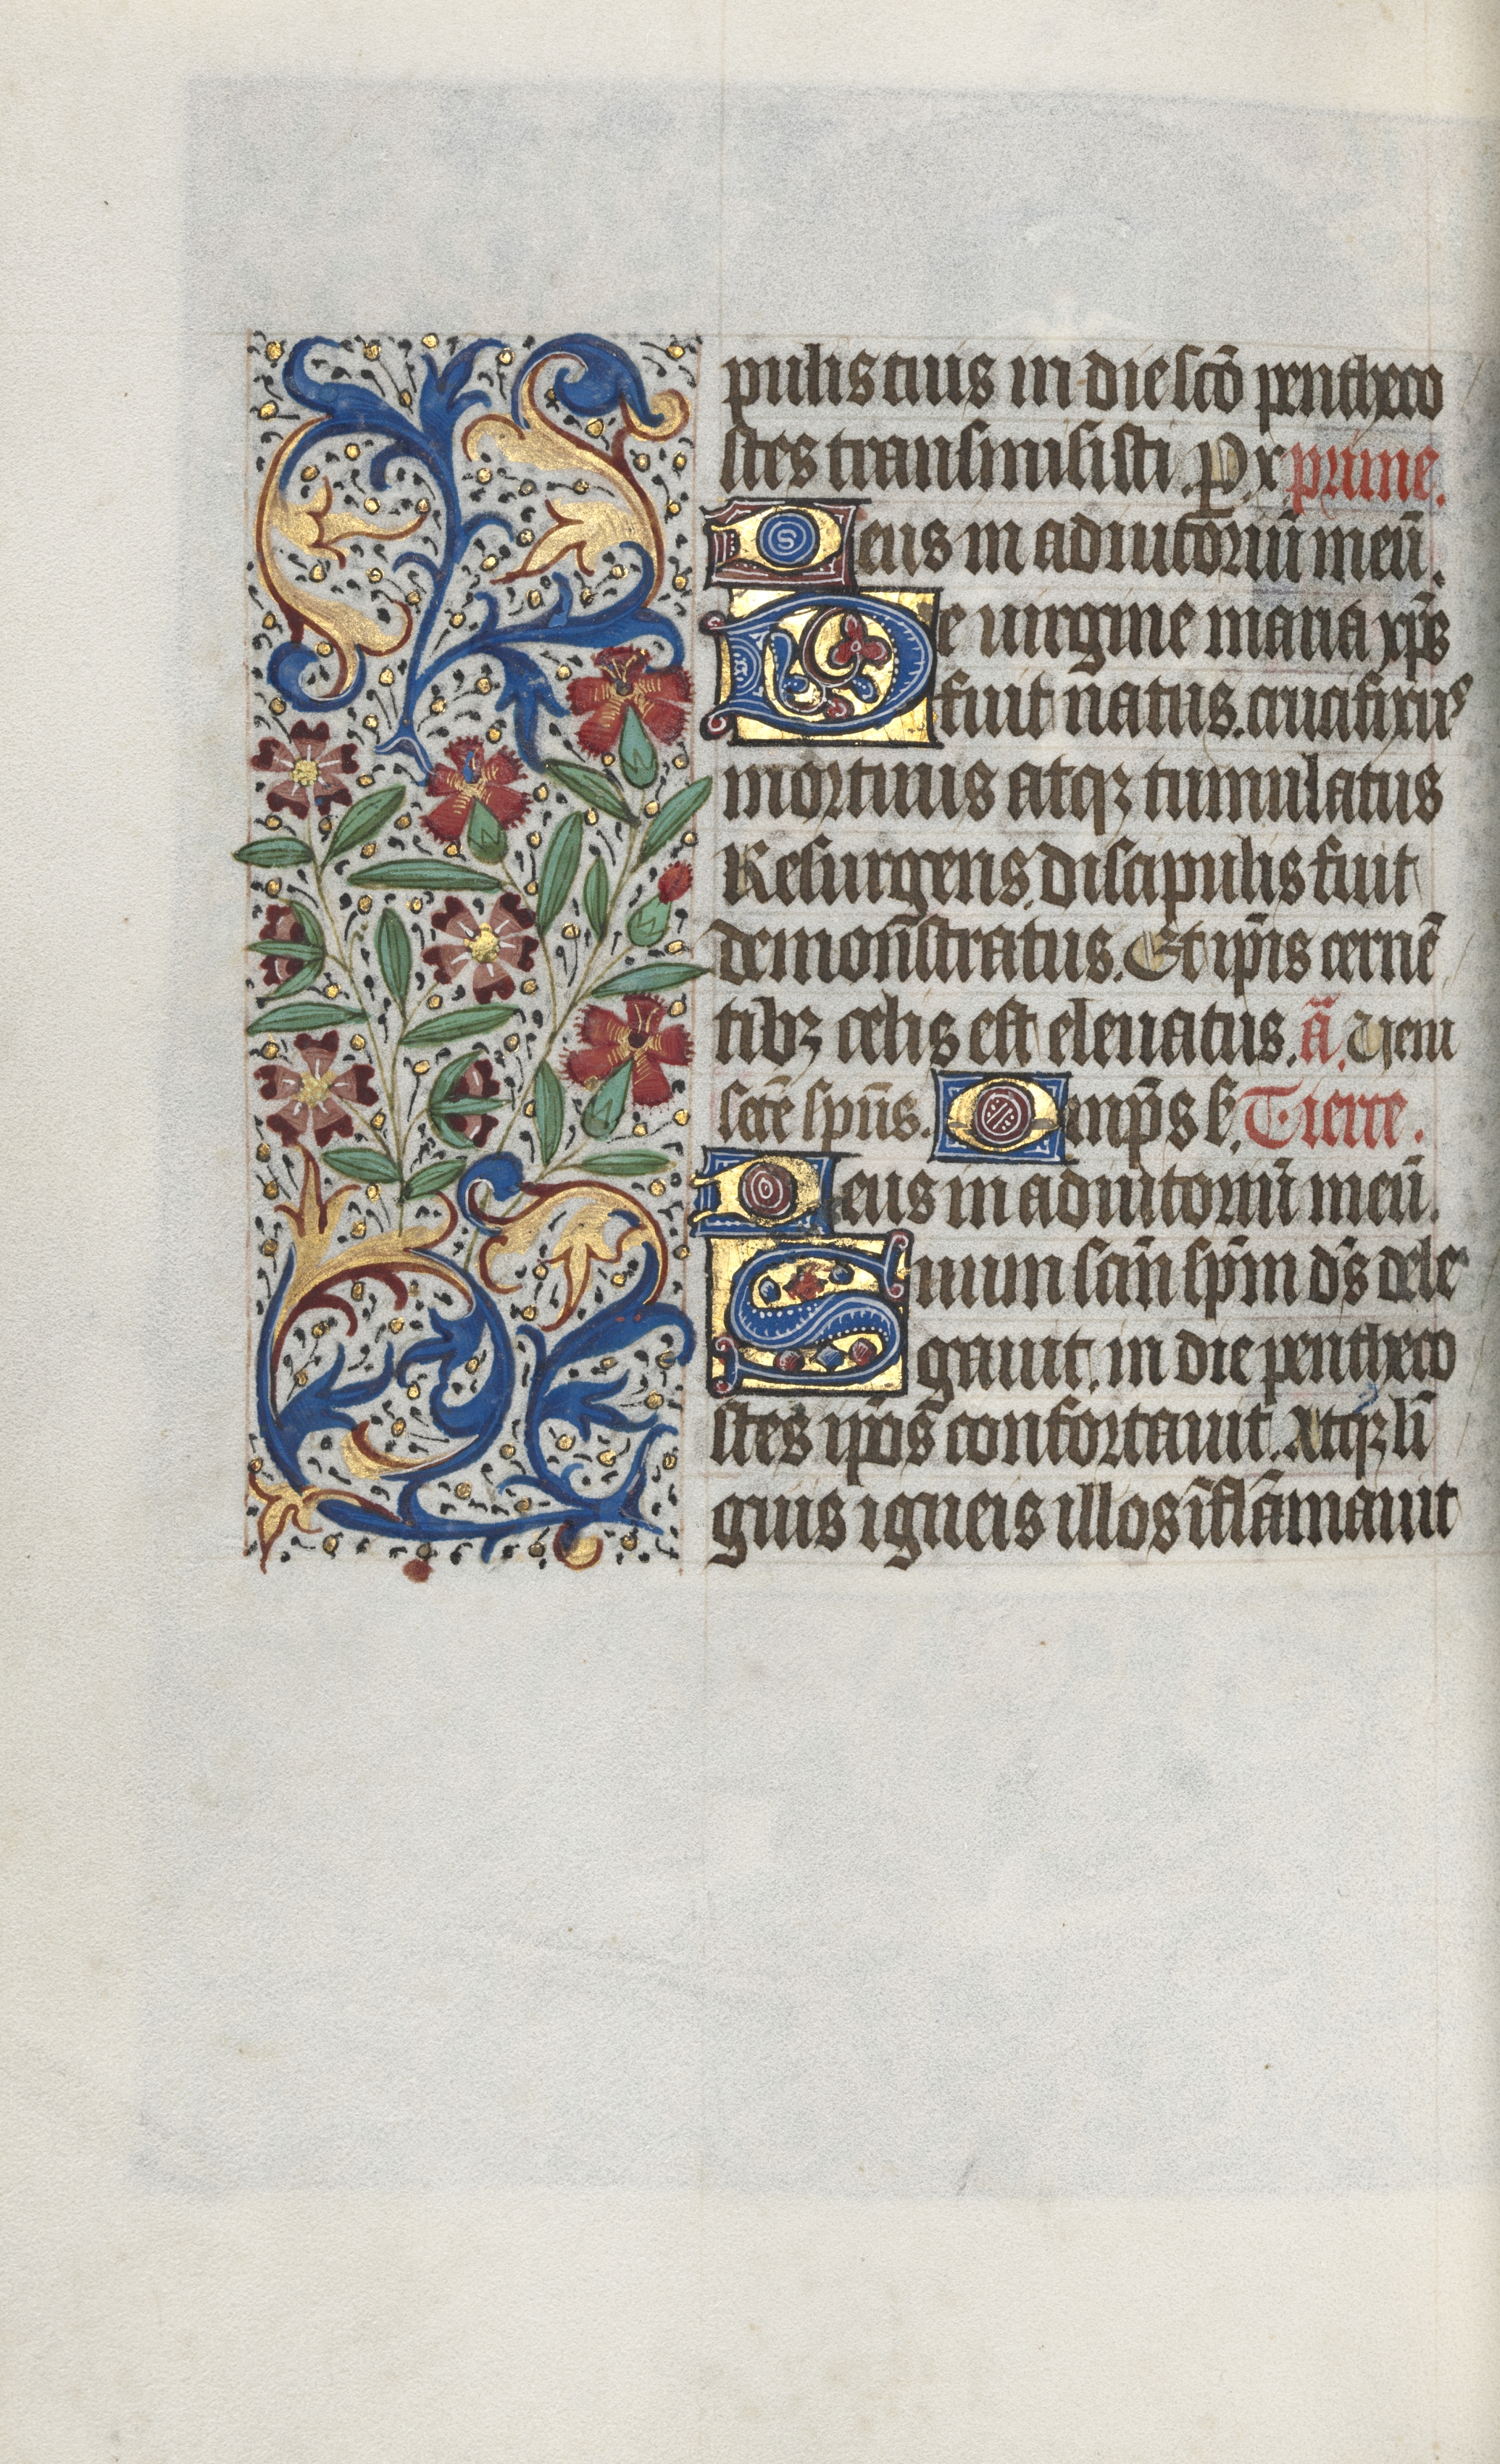 pulis tuis in die scõ pentheco
stes transmisisti. Pr̃ x prime.
Deus in adiutoriũ meũ.
De uirgine maria xp̃s
fuit natus. crucifixus
mortuus atqꝫ tumulatus
Resurgens. discipulis fuit
demonstratus. Et ip̃is cernẽ
tibꝫ celis est eleuatus. ã. Ueni
sctẽ sp̃us. Omp̃s s̃. Tierce.
Deus in adiutoriũ meũ.
Suum sctũ sp̃m dñs dele
gauit. in die pentheco
stes ip̃os confortauit. Atqꝫ lĩ
guis igneis illos ĩflãmauit